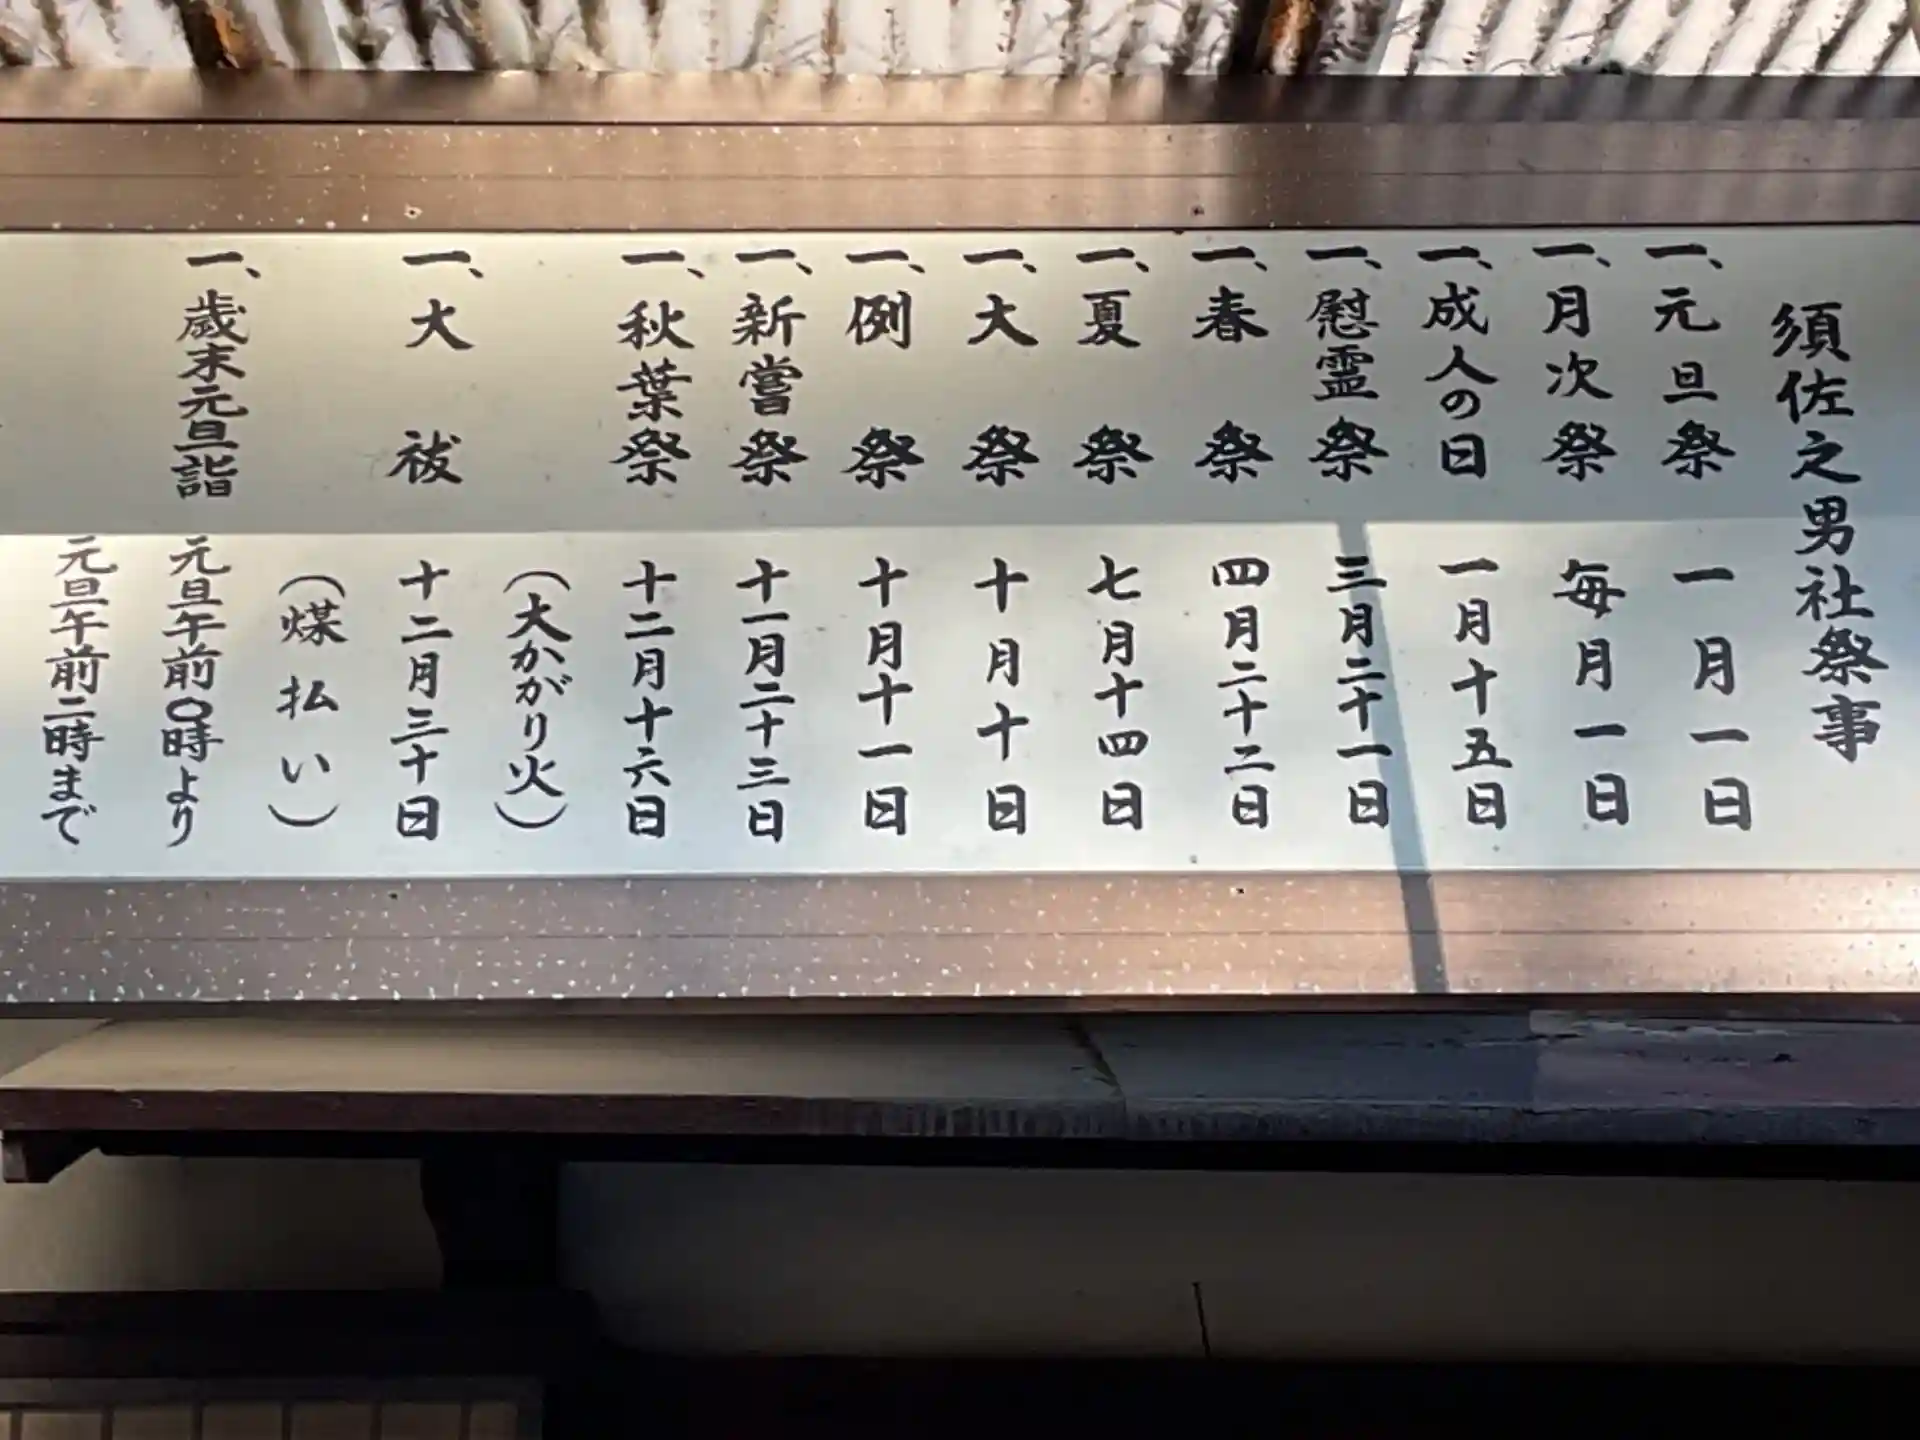 須佐之男社祭事
一、元旦祭 一月一日
一、月次祭 毎月一日
一、成人の日 一月十五日
一、慰霊祭 三月二十一日
一、春祭 四月二十二日
一、夏祭 七月十四日
一、大祭 十月十日
一、例祭 十月十一日
一、新嘗祭 十一月二十三日
一、秋葉祭 十二月十六日
（大かがり火）
一、大祓 十二月三十日
（煤払い）
一、歳末元旦詣 元旦午前〇時より
元旦午前二時まで